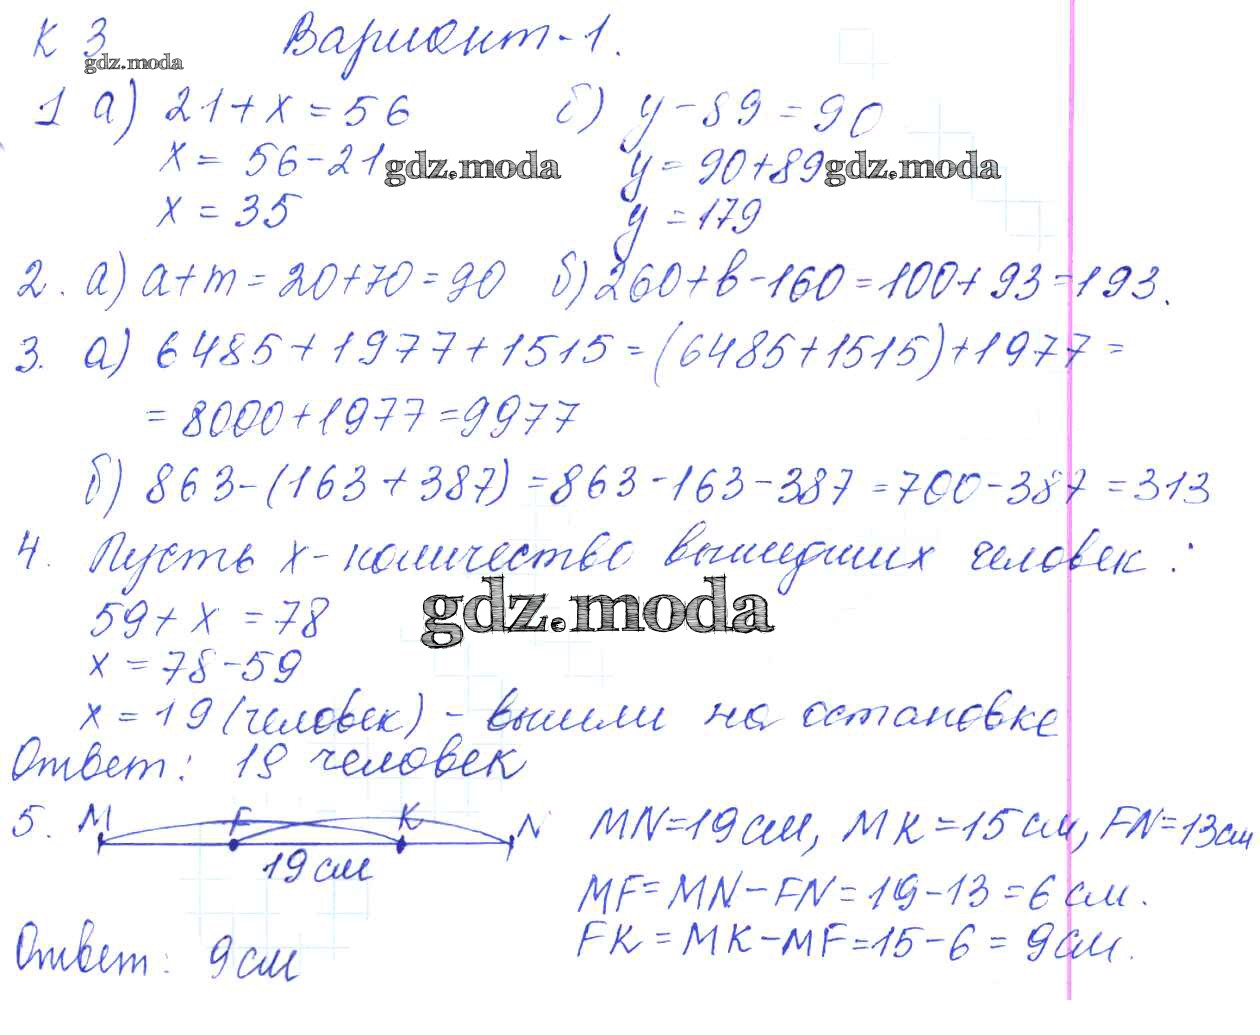 К 3 Вариант-1.
gdz.moda
1 а) 21+x=56 б) y-89=90
x= 56-21 gdz.moda y=90+89 gdz.moda
x=35 y=179
2. а) a+m=20+70=90 б) 260+b-160=100+93=193.
3. а) 6485+1977+1515=(6485+1515)+1977=
=8000+1977=9977
б) 863-(163+387)=863-163-387=700-387=313
4. Пусть x-количество вышедших человек:
gdz.moda
59+x=78
x=78-59
x=19(человек)-вышли на остановке
Ответ: 19 человек
5. M F K N MN=19см, MK=15см, FN=13см
19см
MF=MN-FN=19-13=6см.
FK=MK-MF=15-6=9см.
Ответ: 9см